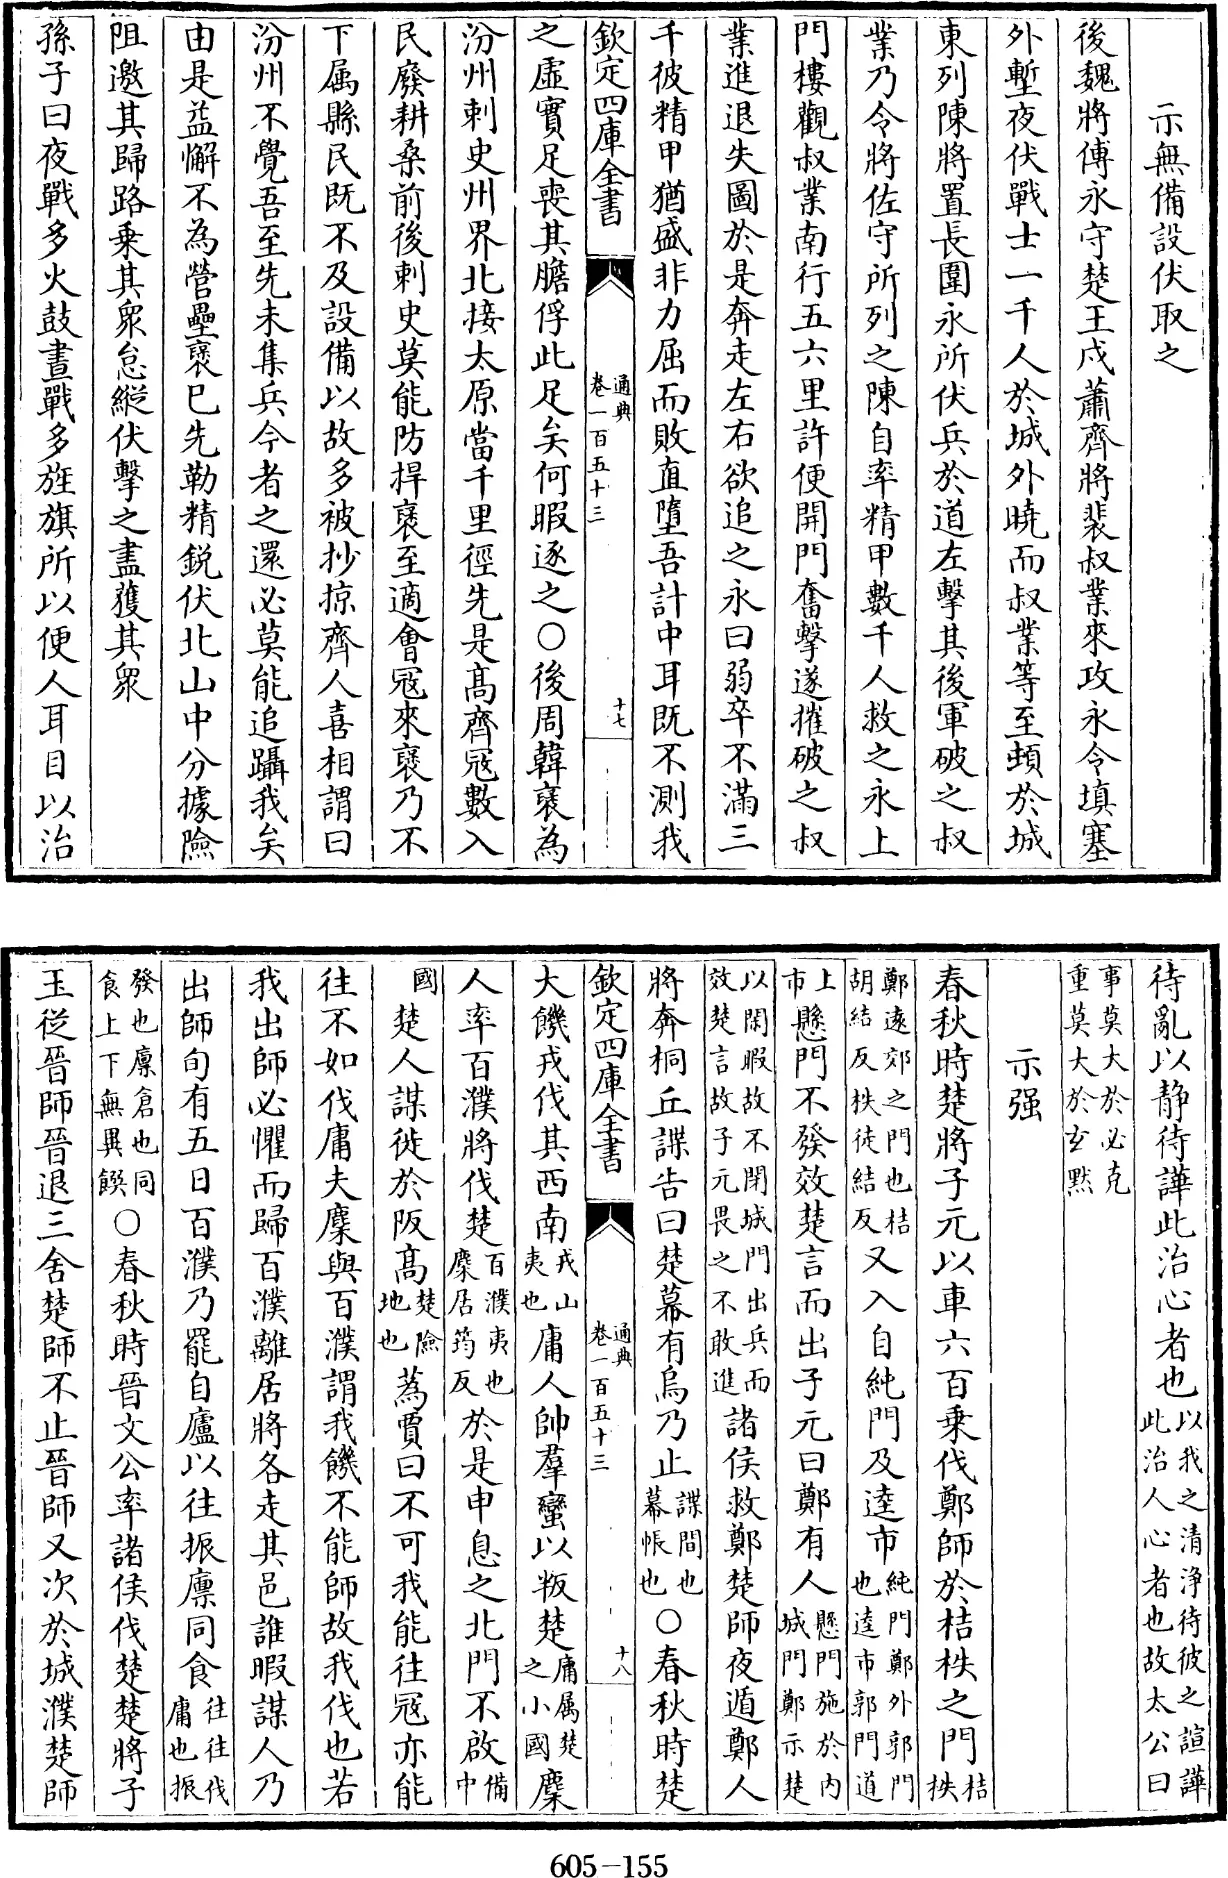 示無備設伏取之
後魏將傅永守楚王戍蕭齊將裴叔業來攻永令填塞
外塹夜伏戰士一千人於城外曉而叔業等至頓於城
東列陳將置長圍永所伏兵於道左擊其後軍破之叔
業乃令將佐守所列之陳自率精甲數千人救之永上
門樓觀叔業南行五六里許便開門奮擊遂摧破之叔
業進退失圖於是奔走左右欲追之永曰弱卒不滿三
千彼精甲猶盛非力屈而敗直墮吾計中耳既不測我
欽定四庫全書
通典
卷一百五十三
十七
之虛實足喪其膽俘此足矣何暇逐之○後周韓褒為
汾州刺史州界北接太原當千里徑先是高齊冦數入
民廢耕桑前後刺史莫能防捍褒至適會冦來褒乃不
下屬縣民既不及設備以故多被抄掠齊人喜相謂曰
汾州不覺吾至先未集兵今者之還必莫能追躡我矣
由是益懈不為營壘褒已先勒精鋭伏北山中分據險
阻邀其歸路乗其衆怠縱伏擊之盡獲其衆
孫子曰夜戰多火鼓晝戰多旌旗所以便人耳目以治
待亂以静待譁此治心者也以我之清淨待彼之諠譁
此治人心者也故太公曰
事莫大於必克
重莫大於玄默
示强
春秋時楚將子元以車六百乗伐鄭師於桔柣之門桔
柣
鄭遠郊之門也桔
胡結反柣徒結反又入自純門及逵市純門鄭外郭門
也逵市郭門道
上懸門不發效楚言而出子元曰鄭有人懸門施於内
城門鄭示楚
市
以閑暇故不閉城門出兵而
效楚言故子元畏之不敢進諸侯救鄭楚師夜遁鄭人
將奔桐丘諜告曰楚幕有烏乃止諜間也
幕帳也○春秋時楚
欽定四庫全書
通典
卷一百五十三
十八
大饑戎伐其西南戎山
夷也庸人帥羣蠻以叛楚庸属楚
之小國麇
人率百濮將伐楚百濮夷也
麇居筠反於是申息之北門不啟備
中
國楚人謀徙於阪高楚險
地也蒍賈曰不可我能往冦亦能
往不如伐庸夫麇與百濮謂我饑不能師故我伐也若
我出師必懼而歸百濮離居將各走其邑誰暇謀人乃
出師旬有五日百濮乃罷自廬以往振廩同食往往伐
庸也振
發也廩倉也同
食上下無異饌○春秋時晉文公率諸侯伐楚楚將子
玉從晉師晉退三舍楚師不止晉師又次於城濮楚師
605-155